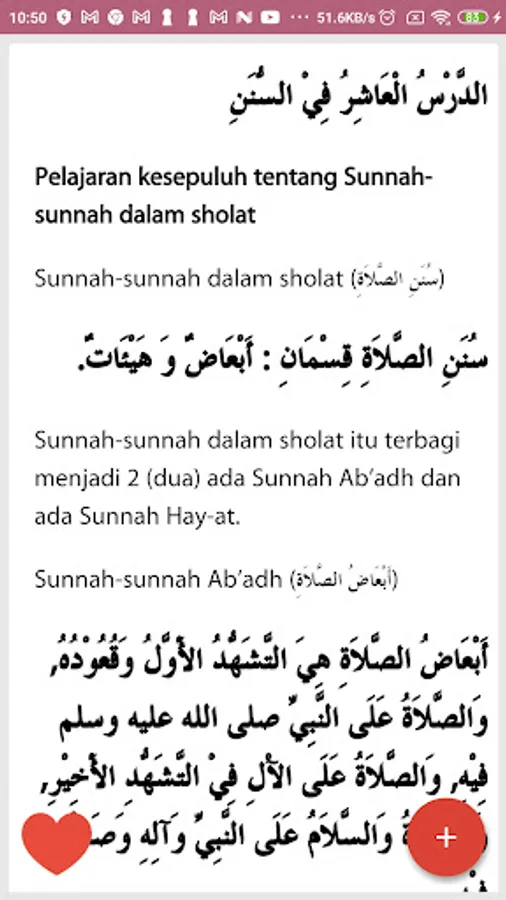 10:50 51.6KB/s 83
الدَّرْسُ الْعَاشِرُ فِيْ السُّنَنِ
Pelajaran kesepuluh tentang Sunnah-
sunnah dalam sholat
Sunnah-sunnah dalam sholat (سُنَنِ الصَّلَاةِ)
سُنَنِ الصَّلاَةِ قِسْمَانِ : أَبْعَاضٌ وَ هَيْئَاتٌ.
Sunnah-sunnah dalam sholat itu terbagi
menjadi 2 (dua) ada Sunnah Ab’adh dan
ada Sunnah Hay-at.
Sunnah-sunnah Ab’adh (أَبْعَاضُ الصَّلَاةِ)
أَبْعَاضُ الصَّلاَةِ هِيَ التَّشَهُّدُ الأَوَّلُ وَقُعُوْدُهُ,
وَالصَّلاَةُ عَلَى النَّبِيِّ صلى الله عليه وسلم
فِيْهِ, وَالصَّلاَةُ عَلَى الآلِ فِيْ التَّشَهُّدِ الأَخِيْرِ,
وَالسَّلاَمُ عَلَى النَّبِيِّ وَآلِهِ